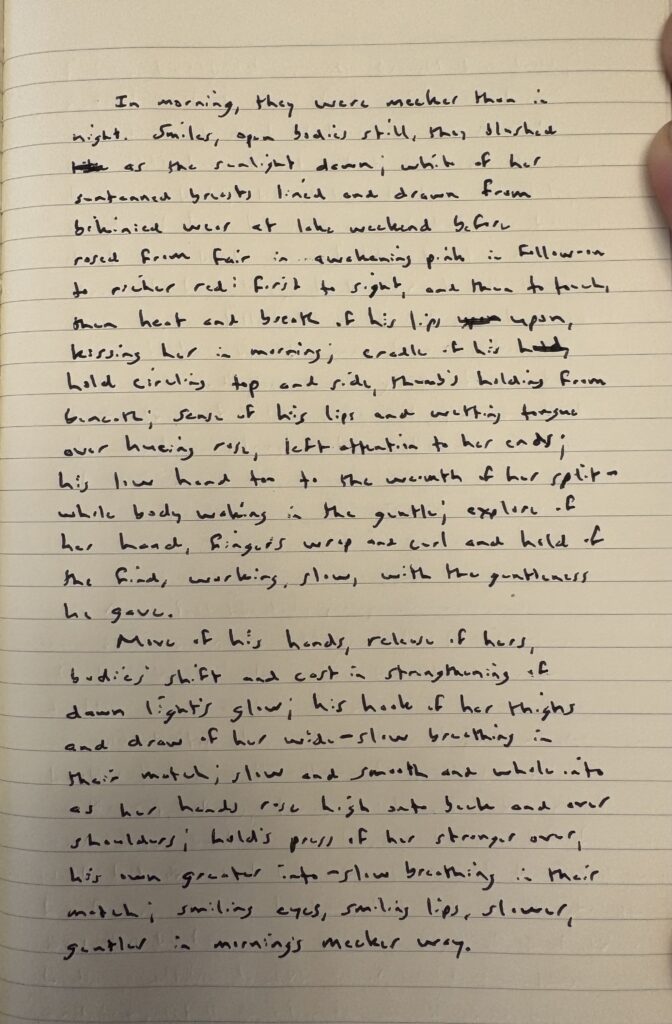 In morning, they were meeker than in
night. Smiles, open bodies still, they blushed
as the sunlight dawn; white of her
suntanned breasts lined and drawn from
bikinied wear at lake weekend before
rosed from fair in awakening pink in follow-on
to richer red: first to sight, and then to touch,
then heat and breath of his lips upon,
kissing her in morning; cradle of his
hold circling top and side, thumb's holding from
beneath; sense of his lips and wetting tongue
over hueing rose, left attention to her ends;
his low hand too to the warmth of her split-
whole body waking in the gentle; explore of
her hand, fingers wrap and curl and hold of
the find, working, slow, with the gentleness
he gave.
Move of his hands, release of hers,
bodies' shift and cast in strengthening of
dawn light's glow; his hook of her thighs
and draw of her wide-slow breathing in
their match; slow and smooth and whole into
as her hands rose high onto back and over
shoulders; hold's press of her stronger over,
his own greater into-slow breathing in their
match; smiling eyes, smiling lips, slower,
gentler in morning's meeker way.